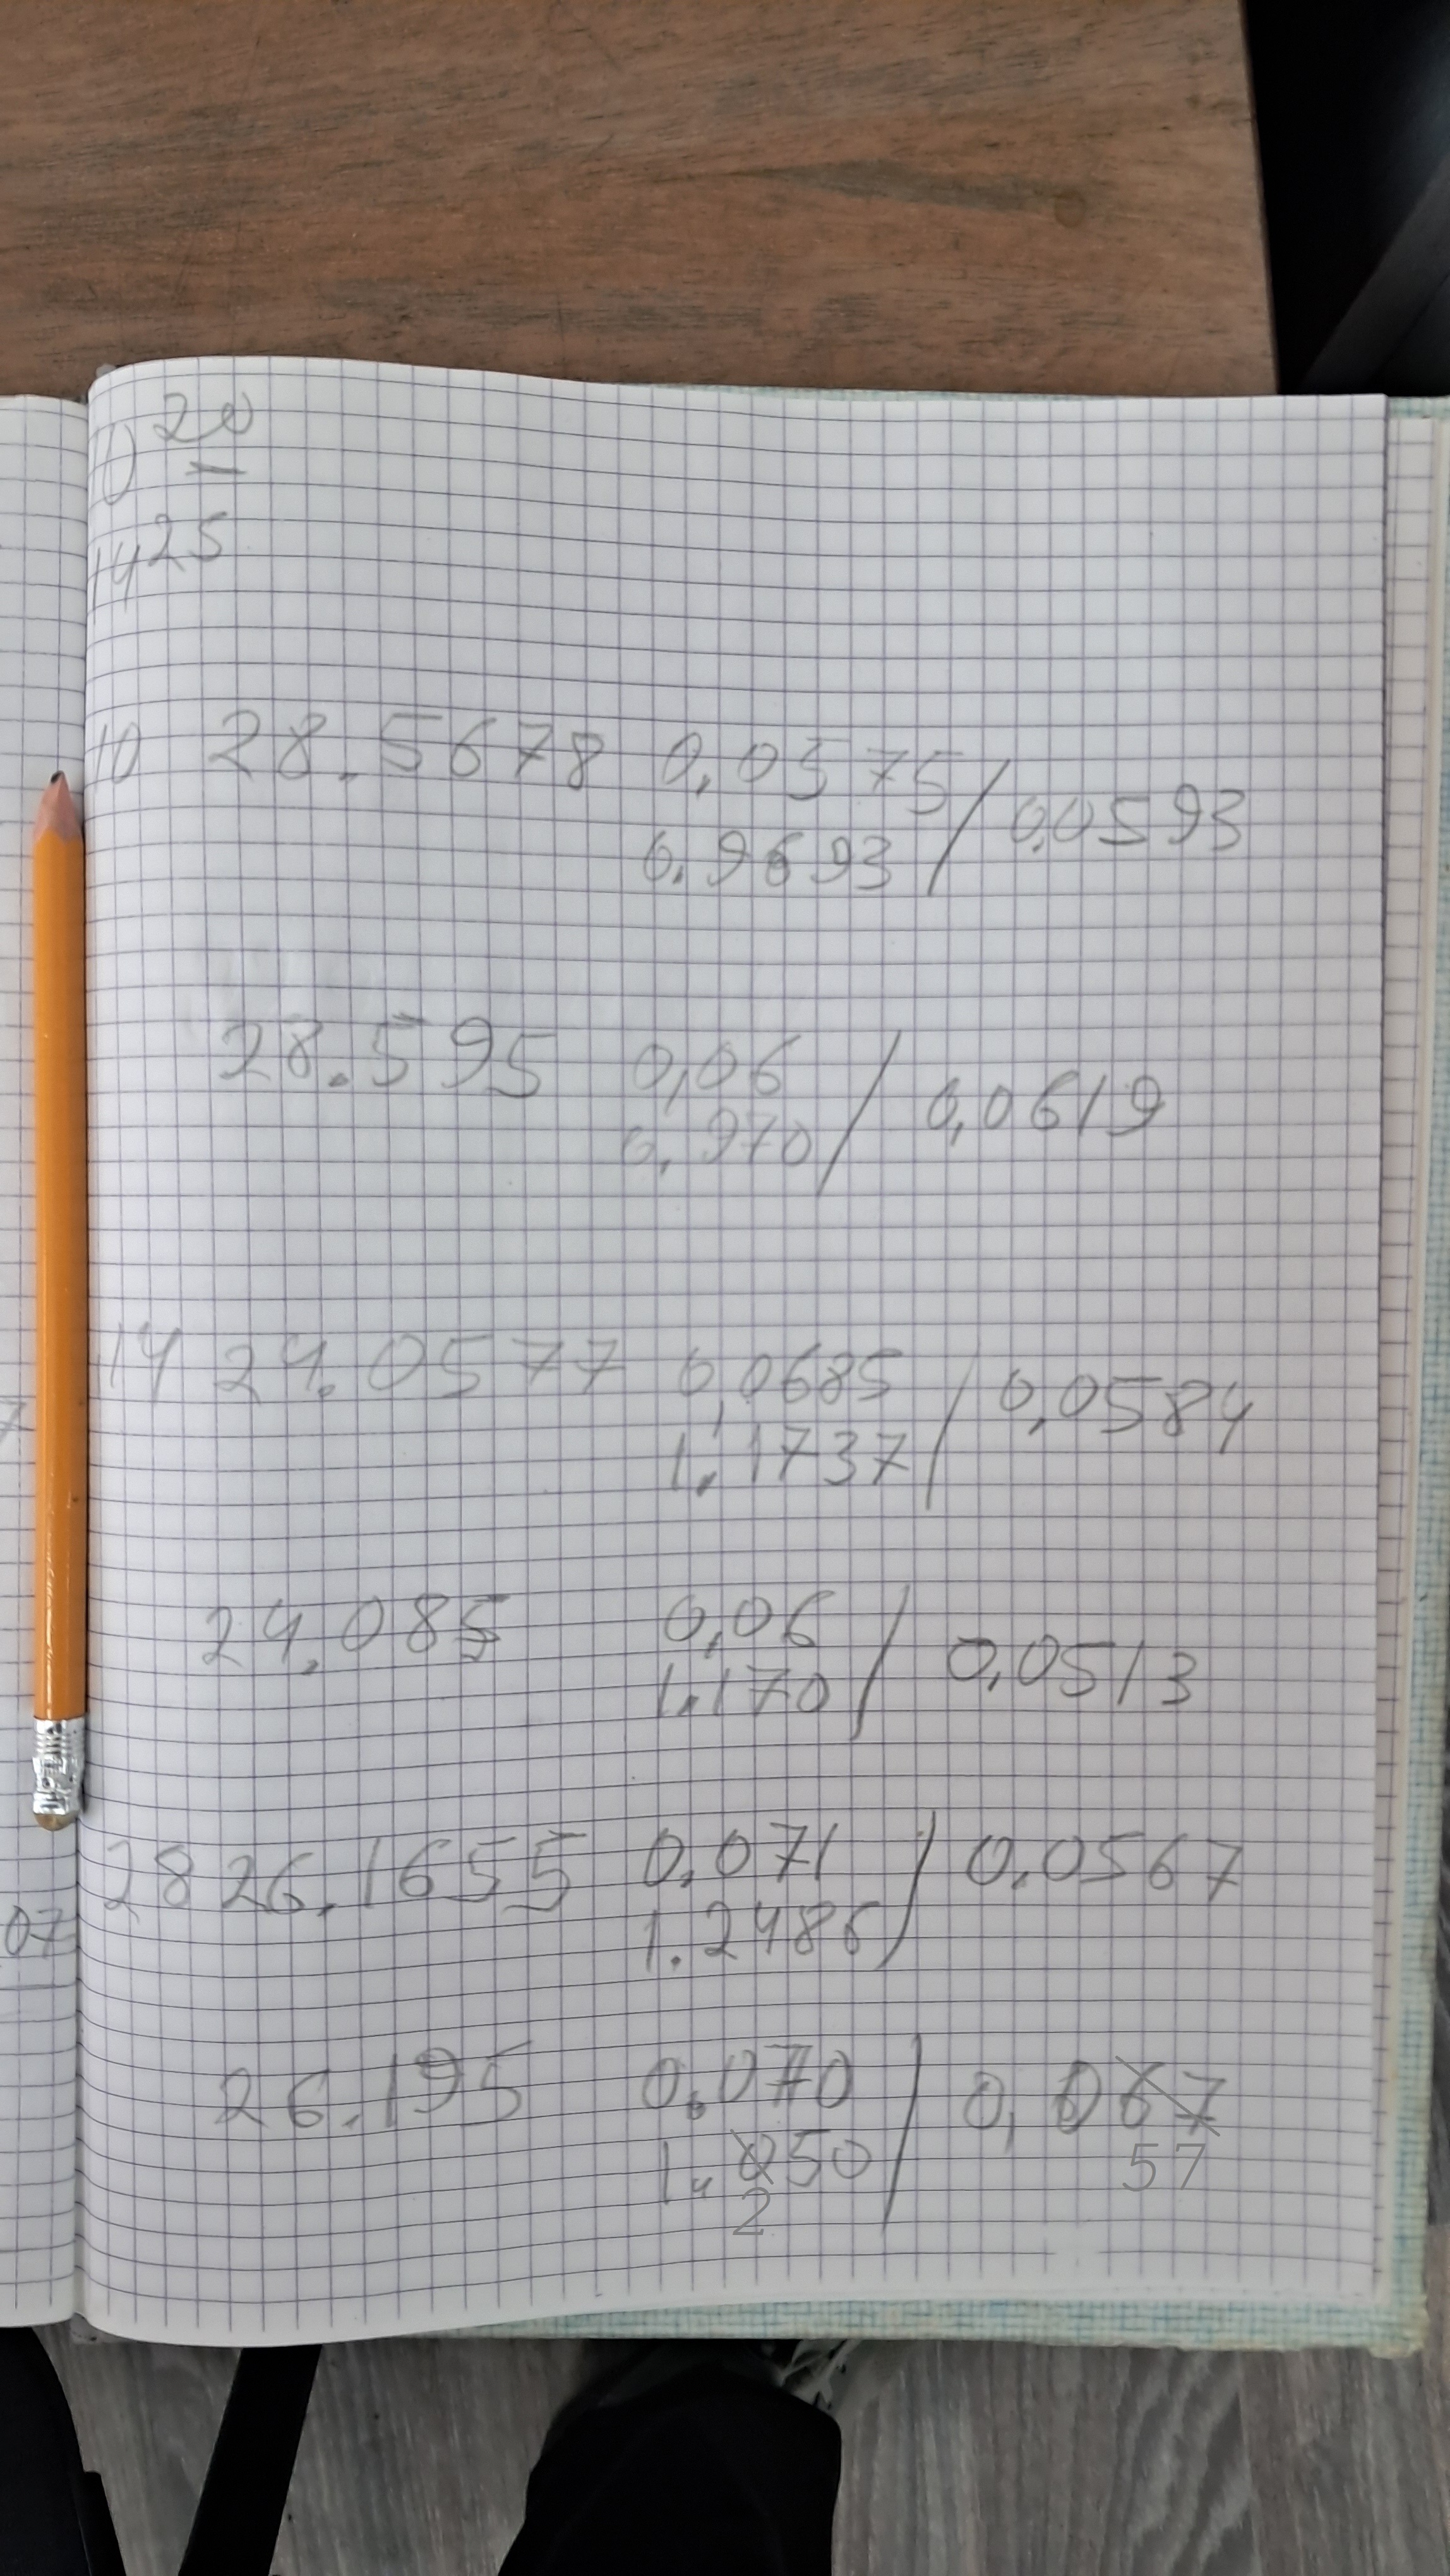 20
10 —
14 25
10 28.5678 0,0575 / 0,0593
0.9693
28.595 0,06 / 0,0619
0.970
14 24.0577 0,0685 / 0,0584
1.1737
24.085 0,06 / 0,0513
1.170
28 26.1655 0.071 / 0.0567
1.2486
26.195 0.070 / 0,067
1.050 57
2
7
07